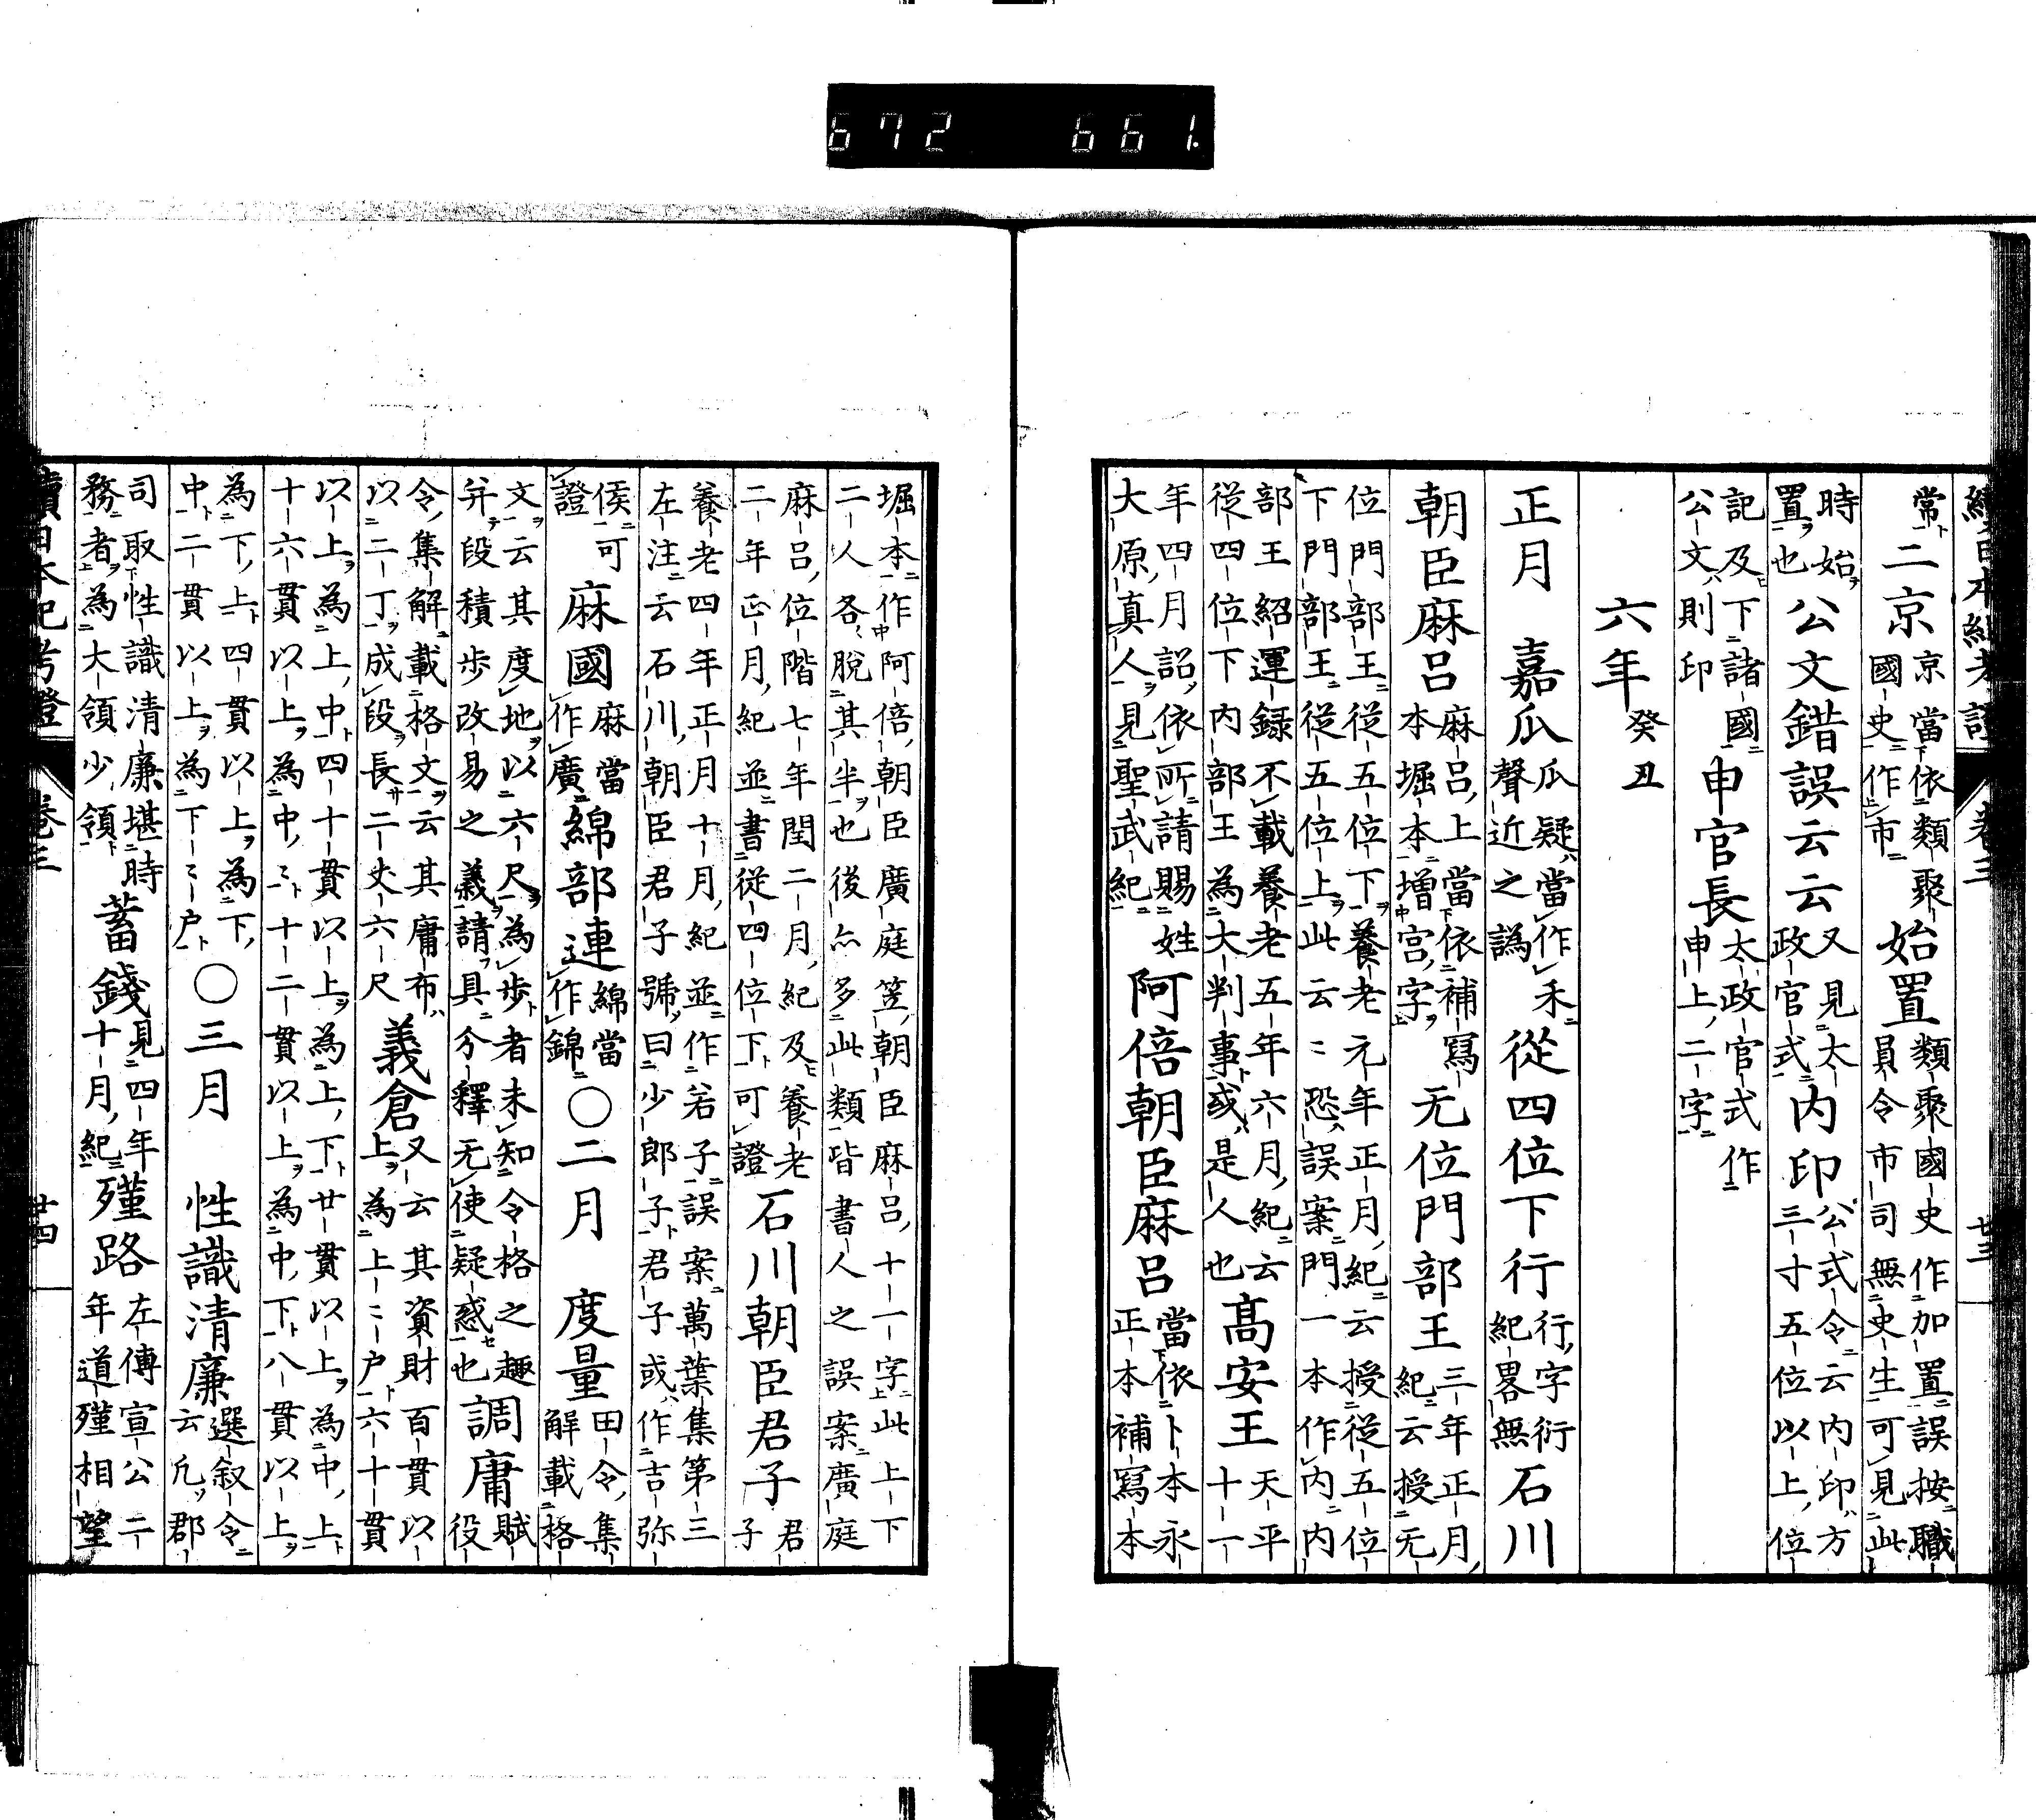 672 661.
續日本紀考證 卷三 廿三
常二京京當依類聚國史作市始置類聚國史作加置誤按職員令市司無史生可見此
時始置也公文錯誤云云又見太政官式内印公式令云内印方三寸五位以上位
記及下諸國公文則印申官長太政官式作申上二字
六年癸丑
正月 嘉瓜瓜疑當作禾聲近之譌從四位下行行字衍紀畧無石川
朝臣麻呂麻呂上當依補寫本堀本增宮字无位門部王三年正月紀云授无
位門部王從五位下養老元年正月紀云授從五位下門部王從五位上此云云恐誤案門一本作内内
部王紹運録不載養老五年六月紀云從四位下内部王為大判事或是人也高安王天平十一
年四月詔依所請賜姓大原真人見聖武紀阿倍朝臣麻呂當依卜本永正本補寫本
堀本作阿倍朝臣廣庭笠朝臣麻呂十一字此上下二人各脱其半也後亦多此類皆書人之誤案廣庭
麻呂位階七年閏二月紀及養老二年正月紀並書從四位下可證石川朝臣君子君子
養老四年正月十月紀並作若子誤案萬葉集第三左注云石川朝臣君子號曰少郎子君子或作吉弥
侯可證麻國麻當作廣綿部連綿當作錦○二月 度量田令集解載格
文云其度地以六尺為步者未知令格之趣并段積步改易之義請具分釋无使疑惑也調庸賦役
令集解載格文云其庸布以二丁成段長二丈六尺義倉又云其資財百貫以上為上上戸六十貫
以上為上中四十貫以上為上下廿貫以上為中上十六貫以上為中中十二貫以上為中下八貫以上
為下上四貫以上為下中二貫以上為下下戸○三月 性識清廉選叙令云凡郡
司取性識清廉堪時務者為大領少領蓄錢見四年十月紀殣路左傳宣公二年道殣相望
續日本紀考證 卷三 廿四